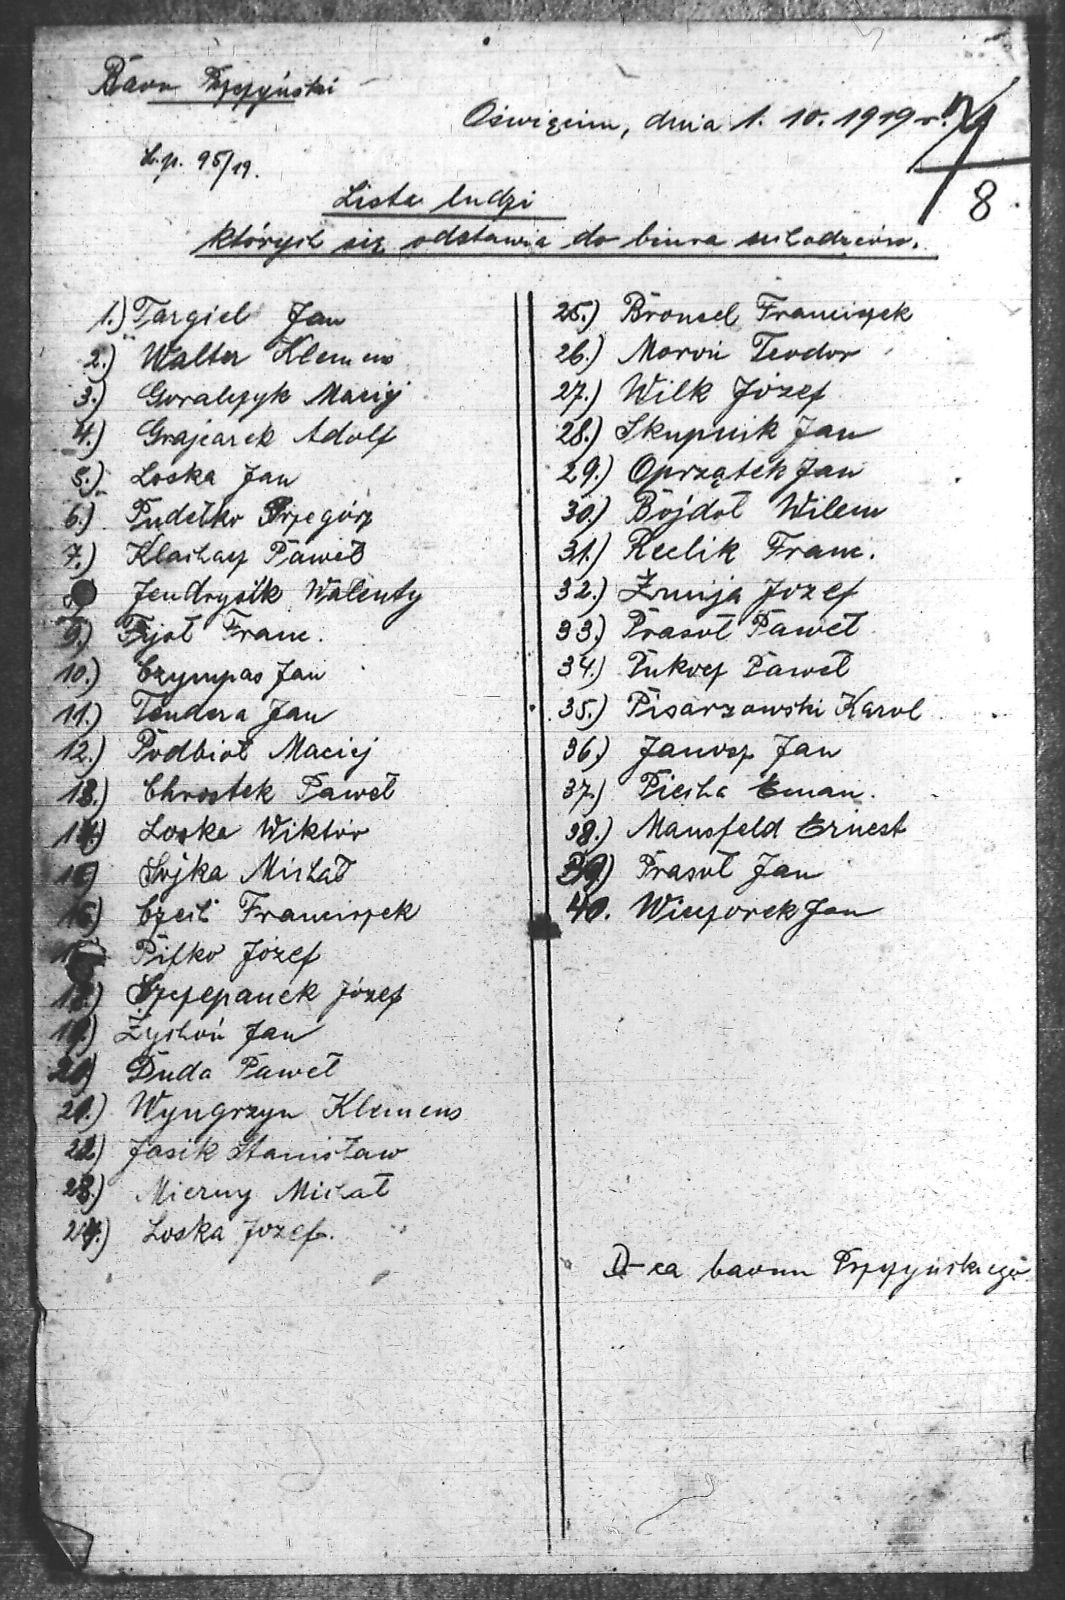 Baon Pszczyński
Oświęcim, dnia 1. 10. 1919 r.
8
L.p. 95/19.
Lista ludzi
których się odstawia do biura uchodźców.
1.) Targiel Jan
2.) Walter Klemens
3.) Goralczyk Maciej
4.) Grajcarek Adolf
5.) Loska Jan
6.) Pudełko Grzegorz
7.) Paweł
Jendrysik Walenty
9.) Fijoł Franc.
10.) Czympas Jan
11.) Tendera Jan
12.) Podbioł Maciej
13.) Chrostek Paweł
14.) Loska Wiktor
15.) Sojka Michał
16.) Franciszek
17.) Pifko Józef
18.) Szczepanek Józef
19.) Żychoń Jan
20.) Duda Paweł
21.) Wyngrzyn Klemens
22.) Jasik Stanisław
23.) Mierny Michał
24.) Loska Józef.
25.) Bronsel Franciszek
26.) Moroń Teodor
27.) Wilk Józef
28.) Skupnik Jan
29.) Oprządek Jan
30.) Bojdoł Wilem
31.) Reclik Franc.
32.) Żmija Józef
33.) Prasoł Paweł
34.) Pukocz Paweł
35.) Pisarzowski Karol
36.) Janosz Jan
37.) Piecha Eman.
38.) Mansfeld Ernest
39.) Prasoł Jan
40. Wieczorek Jan
D-ca baonu Pszczyńskiego